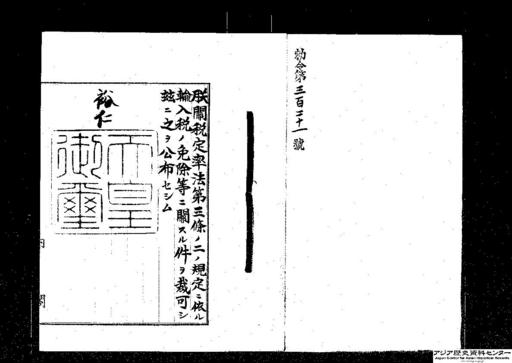 勅令第三百二十一號
朕關税定率法第三條ノ二ノ規定ニ依ル
輸入税ノ免除等ニ關スル件ヲ裁可シ
玆ニ之ヲ公布セシム
裕仁
天皇
御璽
内閣
アジア歴史資料センター
Japan Center for Asian Historical Records